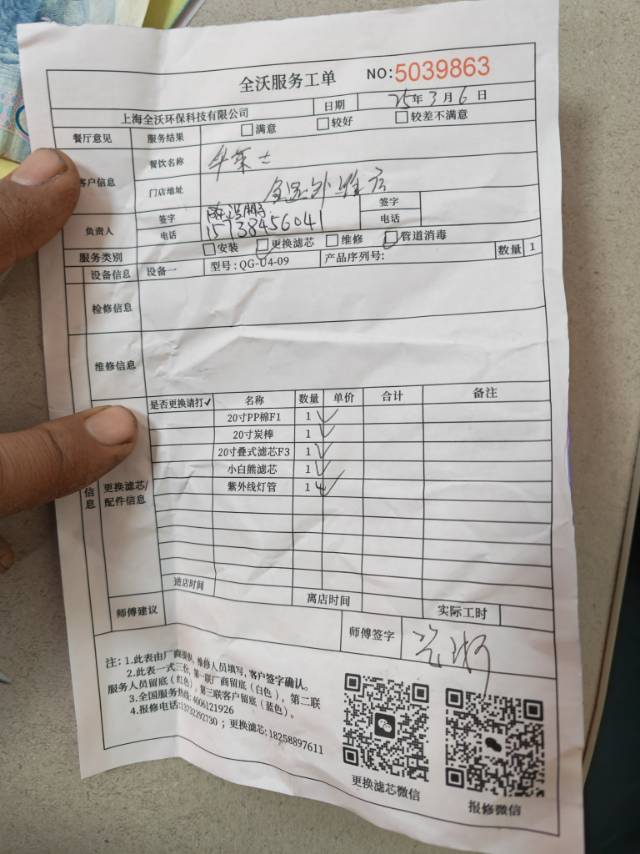 全沃服务工单 NO:5039863
上海全沃环保科技有限公司 日期 25年3月6日
餐厅意见 服务结果 □满意 □较好 □较差不满意
客户信息 餐饮名称 华莱士
门店地址
负责人 签字 签字
电话 15738456041 电话
服务类别 □安装 □更换滤芯 □维修 □管道消毒
设备信息 设备一 型号:QG-U4-09 产品序列号: 数量 1
检修信息
维修信息
更换滤芯/配件信息 是否更换请打✓ 名称 数量 单价 合计 备注
20寸PP棉F1 1 ✓
20寸炭棒 1 ✓
20寸叠式滤芯F3 1 ✓
小白熊滤芯 1 ✓
紫外线灯管 1 4 ✓
信息
进店时间 离店时间 实际工时
师傅建议 师傅签字
注：1.此表由厂商提供，维修人员填写，客户签字确认。
2.此表一式三份，第一联厂商留底（白色），第二联
服务人员留底（红色），第三联客户留底（蓝色）。
3.全国服务热线:4006121926
4.报修电话:13732292730 ；更换滤芯:18258897611
更换滤芯微信 报修微信